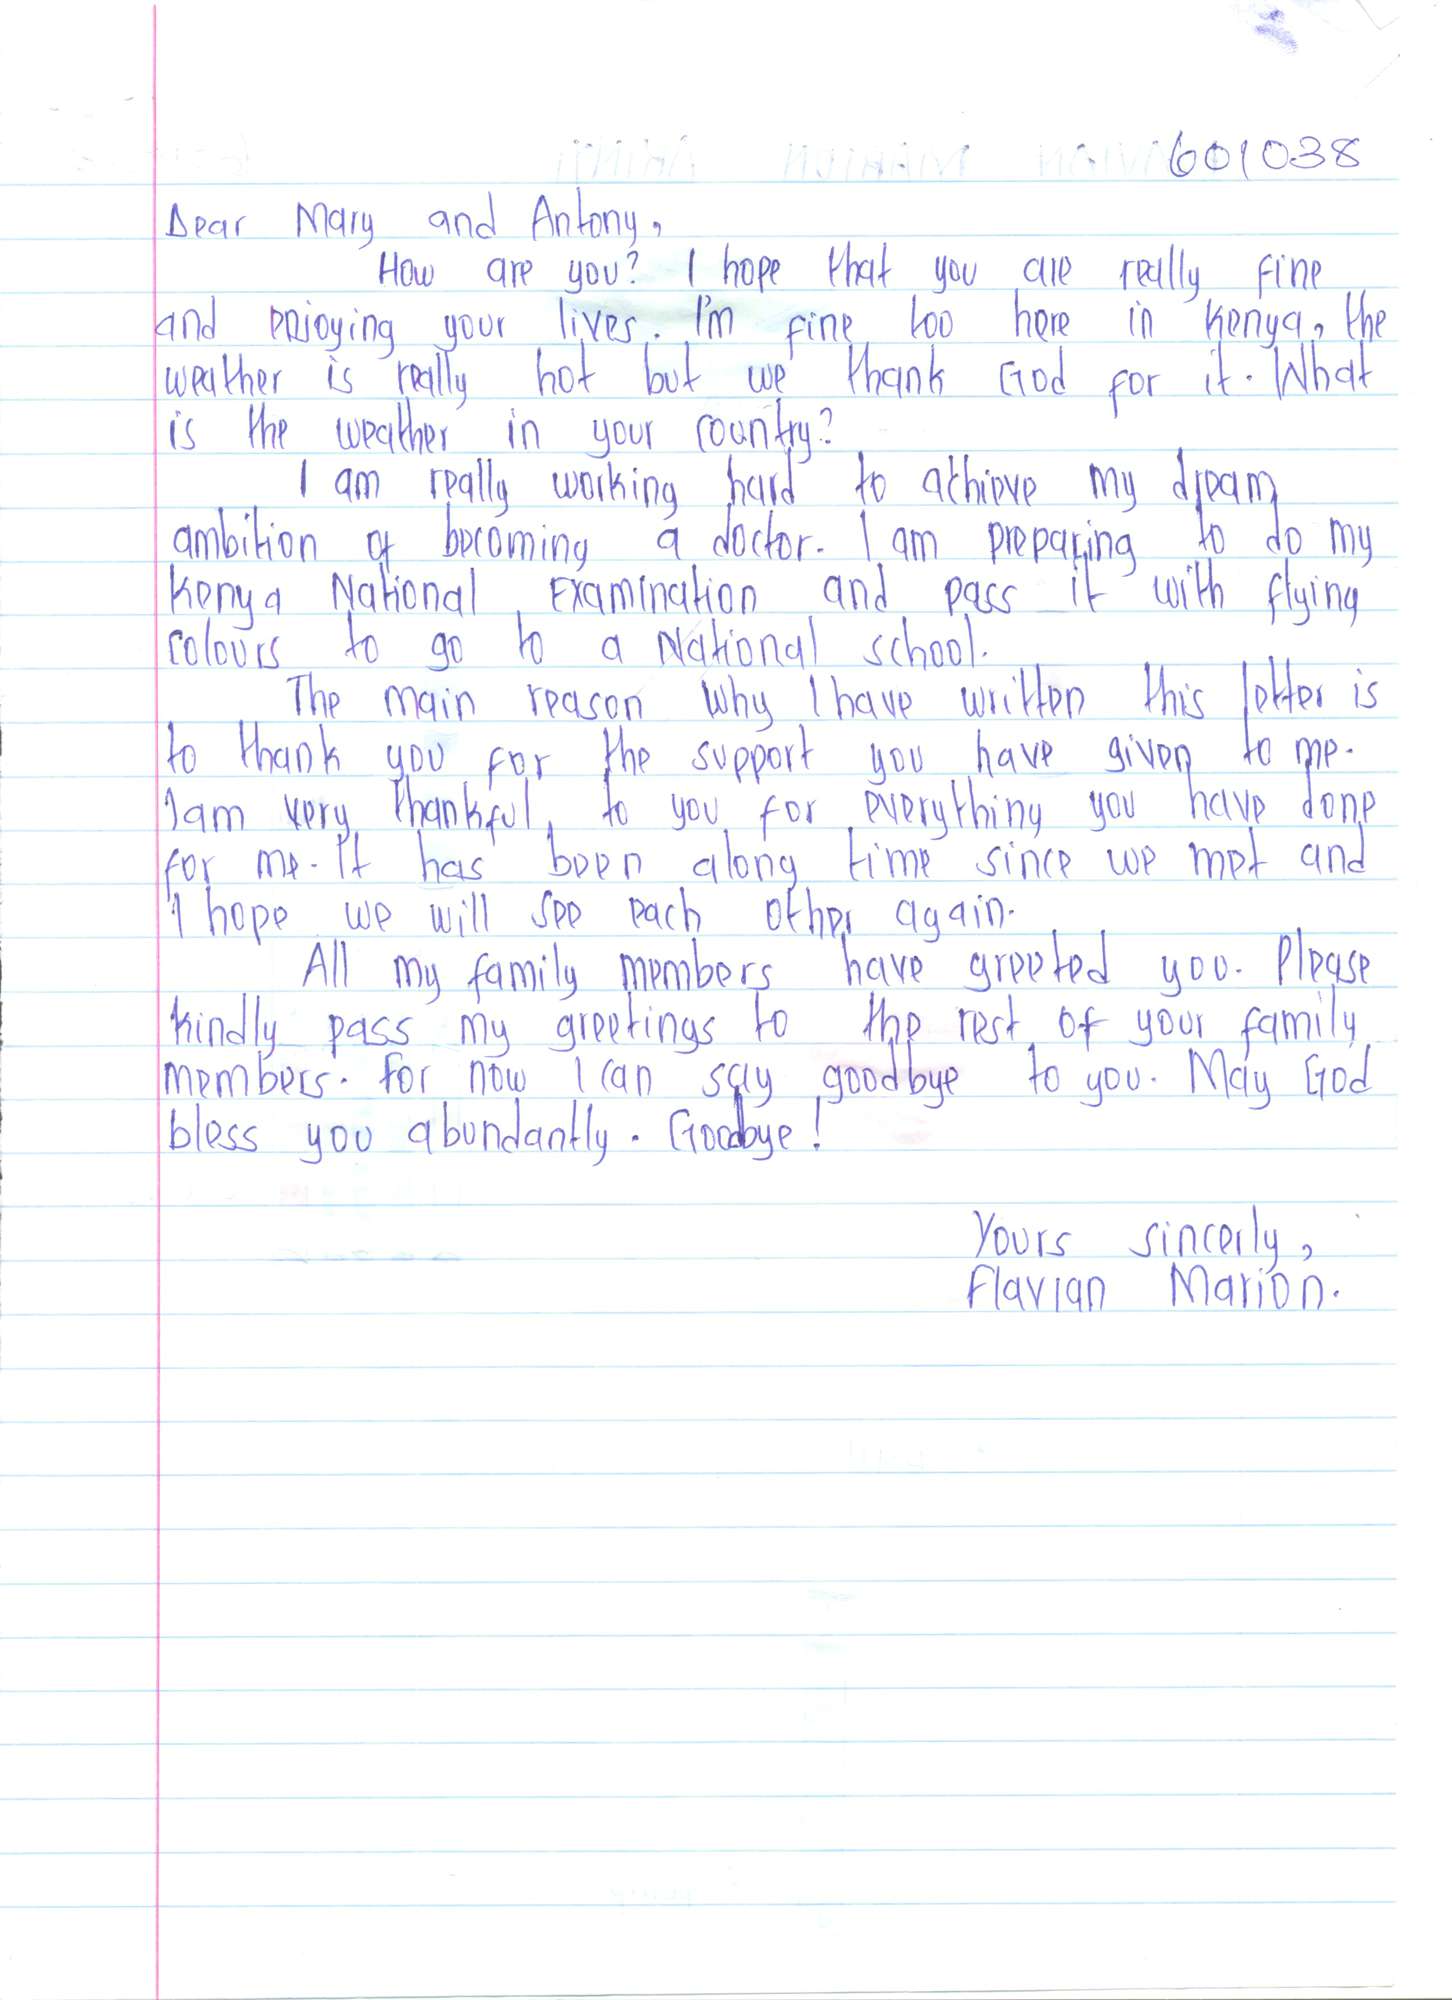 601038
Dear Mary and Antony,
How are you? I hope that you are really fine
and enjoying your lives. I'm fine too here in Kenya, the
weather is really hot but we thank God for it. What
is the weather in your country?
I am really working hard to achieve my dream
ambition of becoming a doctor. I am preparing to do my
Kenya National Examination and pass it with flying
colours to go to a National school.
The main reason why I have written this letter is
to thank you for the support you have given to me.
Iam very thankful to you for everything you have done
for me. It has been along time since we met and
I hope we will see each other again.
All my family members have greeted you. Please
kindly pass my greetings to the rest of your family
members. For now I can say goodbye to you. May God
bless you abundantly. Goodbye!
Yours sincerly,
Flavian Marion.